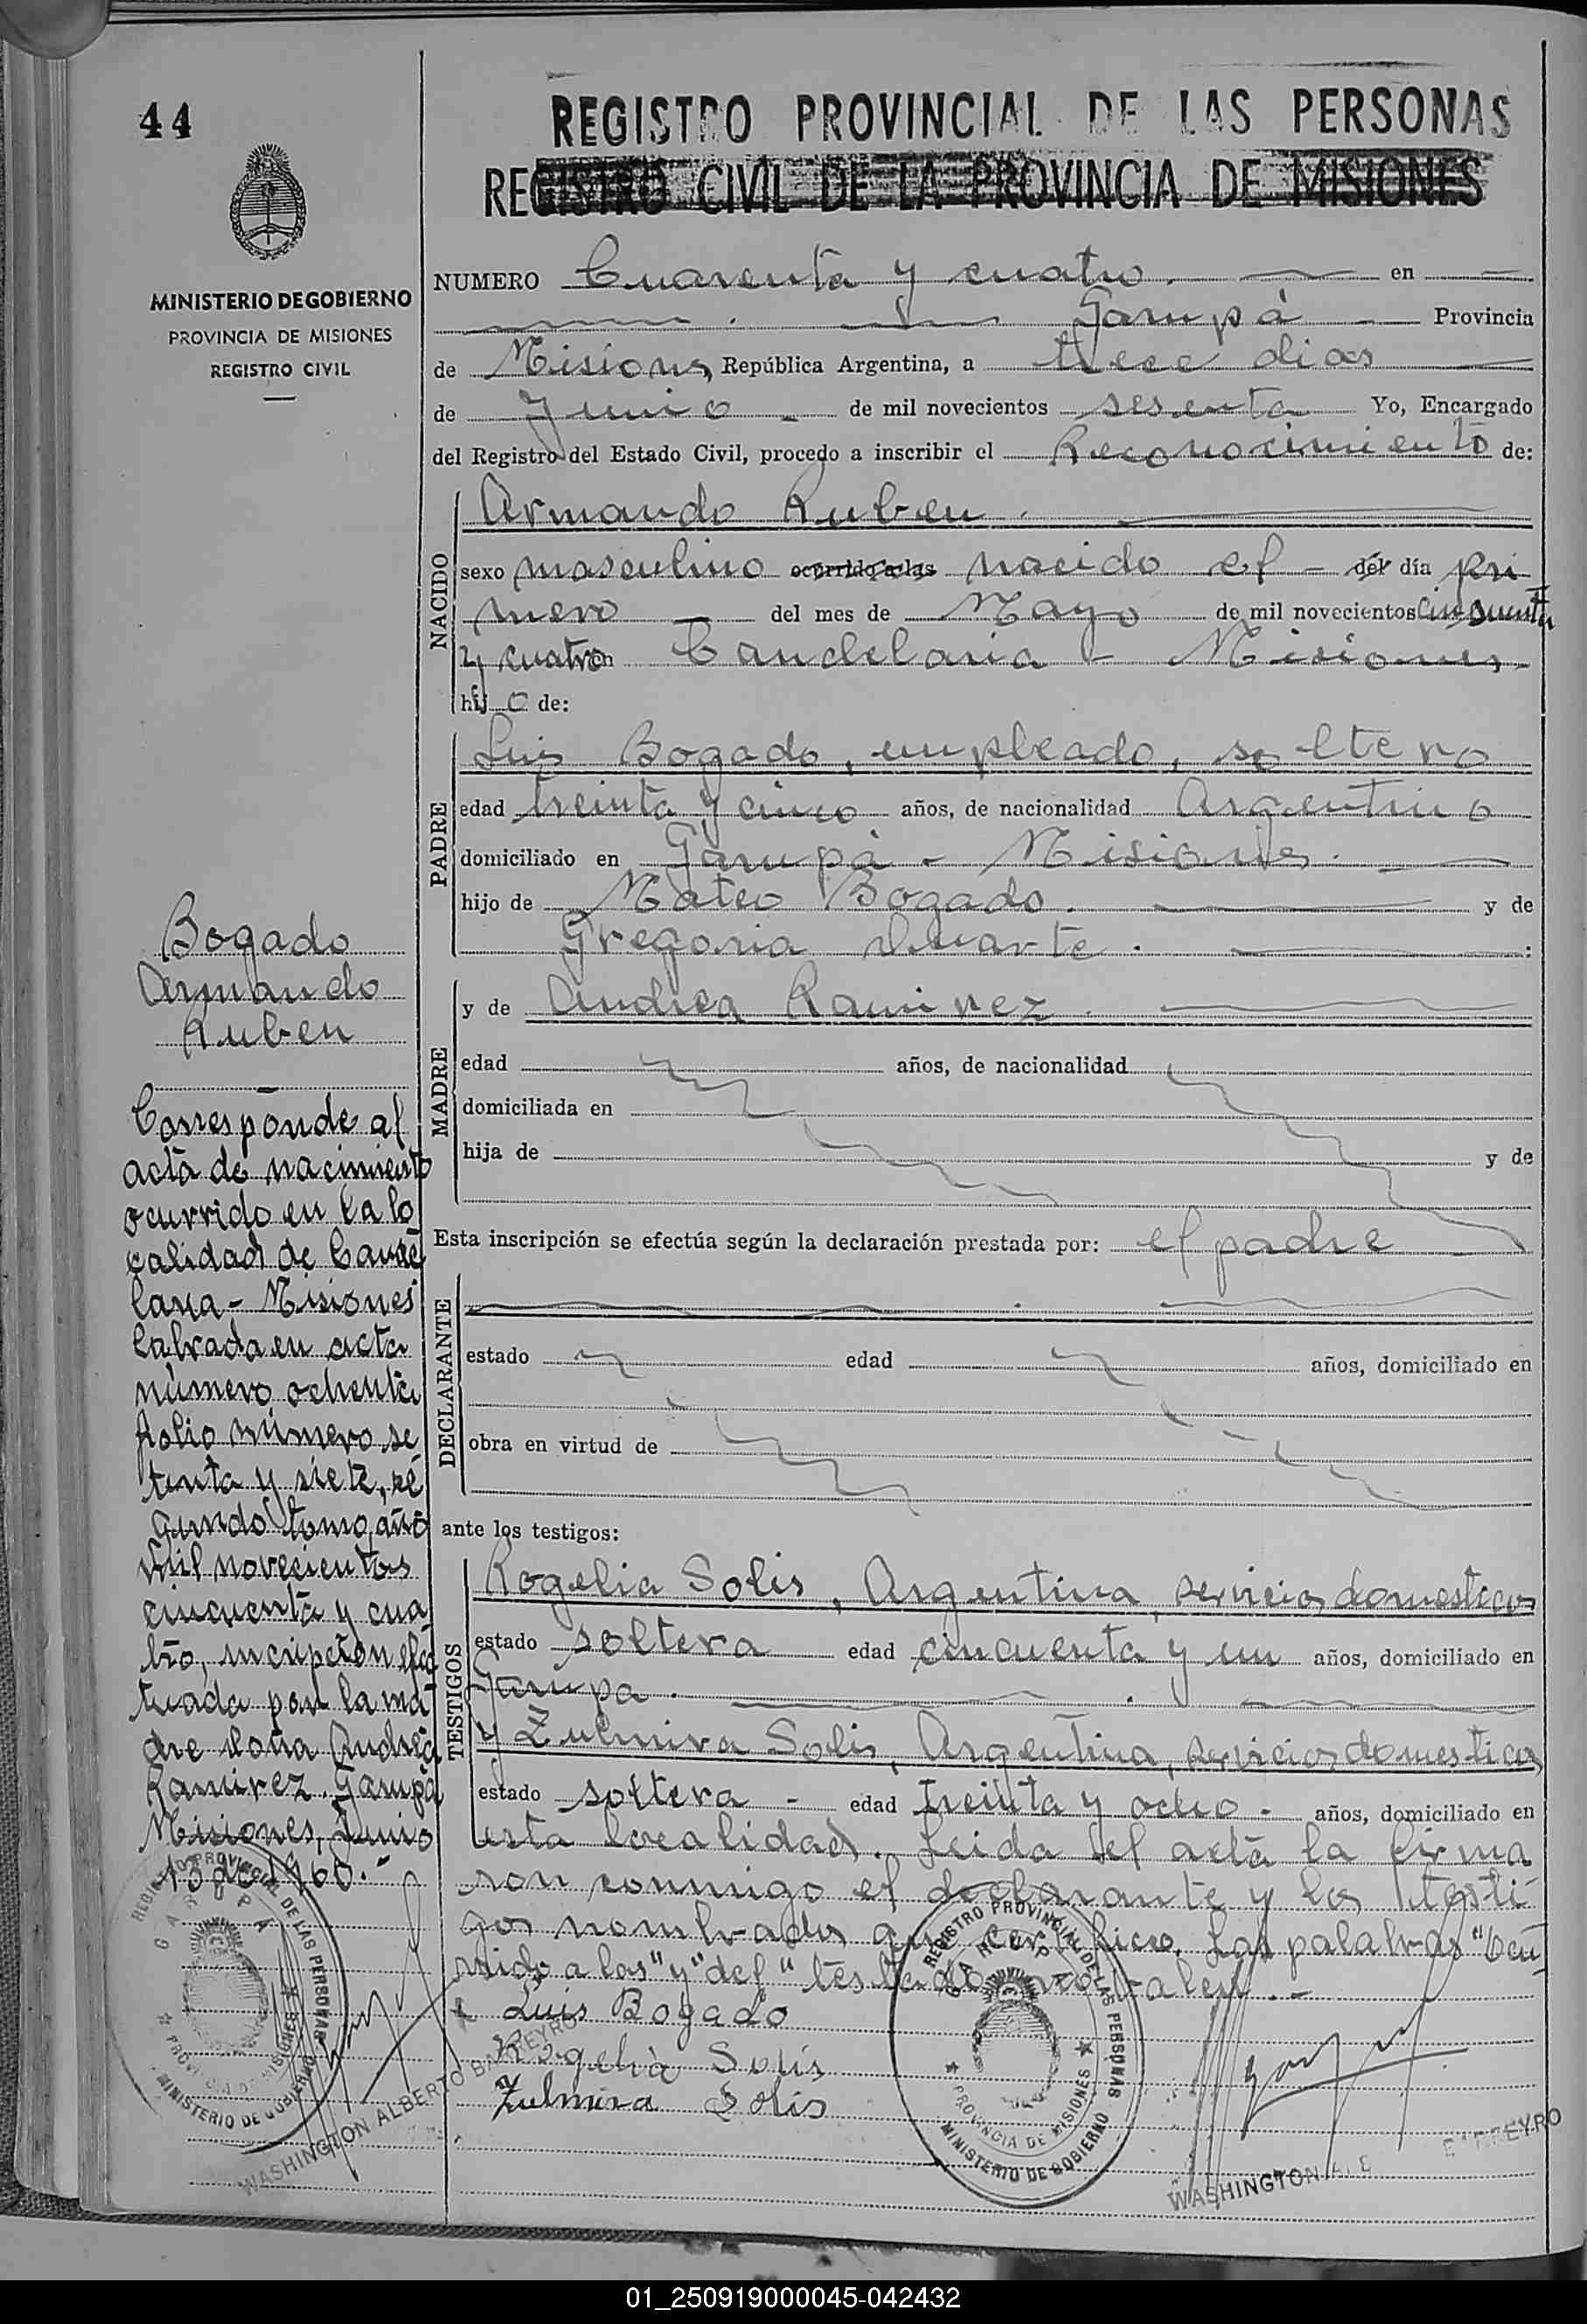 44
REGISTRO PROVINCIAL DE LAS PERSONAS
REGISTRO CIVIL DE LA PROVINCIA DE MISIONES
MINISTERIO DE GOBIERNO
PROVINCIA DE MISIONES
REGISTRO CIVIL
NUMERO Cuarenta y cuatro. en
Garupá Provincia
de Misiones, República Argentina, a trece dias
de Junio de mil novecientos sesenta Yo, Encargado
del Registro del Estado Civil, procedo a inscribir el Reconocimiento de:
NACIDO
Armando Ruben.
sexo masculino ocurrido a las nacido el - del día pri
mero del mes de Mayo de mil novecientos cincuenta
y cuatro en Candelaria - Misiones
hijo de:
PADRE
Luis Bogado, empleado, soltero
edad treinta y cinco años, de nacionalidad Argentino
domiciliado en Garupá - Misiones.
hijo de Mateo Bogado. y de
Gregoria Duarte.
MADRE
y de Andrea Ramirez.
edad años, de nacionalidad
domiciliada en
hija de y de
Esta inscripción se efectúa según la declaración prestada por: el padre
DECLARANTE
estado edad años, domiciliado en
obra en virtud de
ante los testigos:
TESTIGOS
Rogelia Solis, Argentina, servicios domesticos
estado soltera edad cincuenta y un años, domiciliado en
Garupa.
y Zulmira Solis, Argentina, servicios domesticos
estado soltera - edad treinta y ocho - años, domiciliado en
esta localidad. Leida el acta la firma
ron conmigo el declarante y los testi
gos nombrados que certifico. Las palabras "Ocu
rrido a las" y "del" testado no valen.-
Luis Bogado
Rogelia Solis
Zulmira Solis
Bogado
Armando
Ruben
Corresponde al
acta de nacimiento
ocurrido en la lo
calidad de Cande
laria - Misiones
labrada en acta
número ochenta
folio número se
tenta y siete, se
gundo tomo, año
mil novecientos
cincuenta y cua
tro, inscripción efec
tuada por la ma
dre doña Andrea
Ramirez. Garupá
Misiones, Junio
13 de 1960.-
REGISTRO PROVINCIAL DE LAS PERSONAS
GARUPA
PROVINCIA DE MISIONES
MINISTERIO DE GOBIERNO
WASHINGTON ALBERTO BARREYRO
REGISTRO PROVINCIAL DE LAS PERSONAS
GARUPA
PROVINCIA DE MISIONES
MINISTERIO DE GOBIERNO
WASHINGTON
01_250919000045-042432